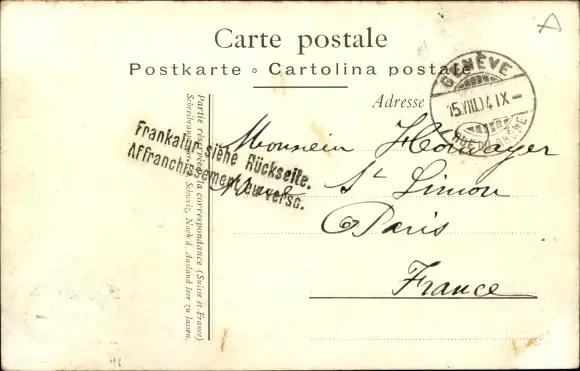 Carte postale
Postkarte ◦ Cartolina postale
Adresse
GENÈVE
15.VIII.04 IX–
Frankatur siehe Rückseite.
Affranchissement au verso.
Partie réservée à la correspondance (Suisse et France)
Schweiz. Nach d. Ausland leer zu lassen.
Monsieur
St Simon
Paris
France